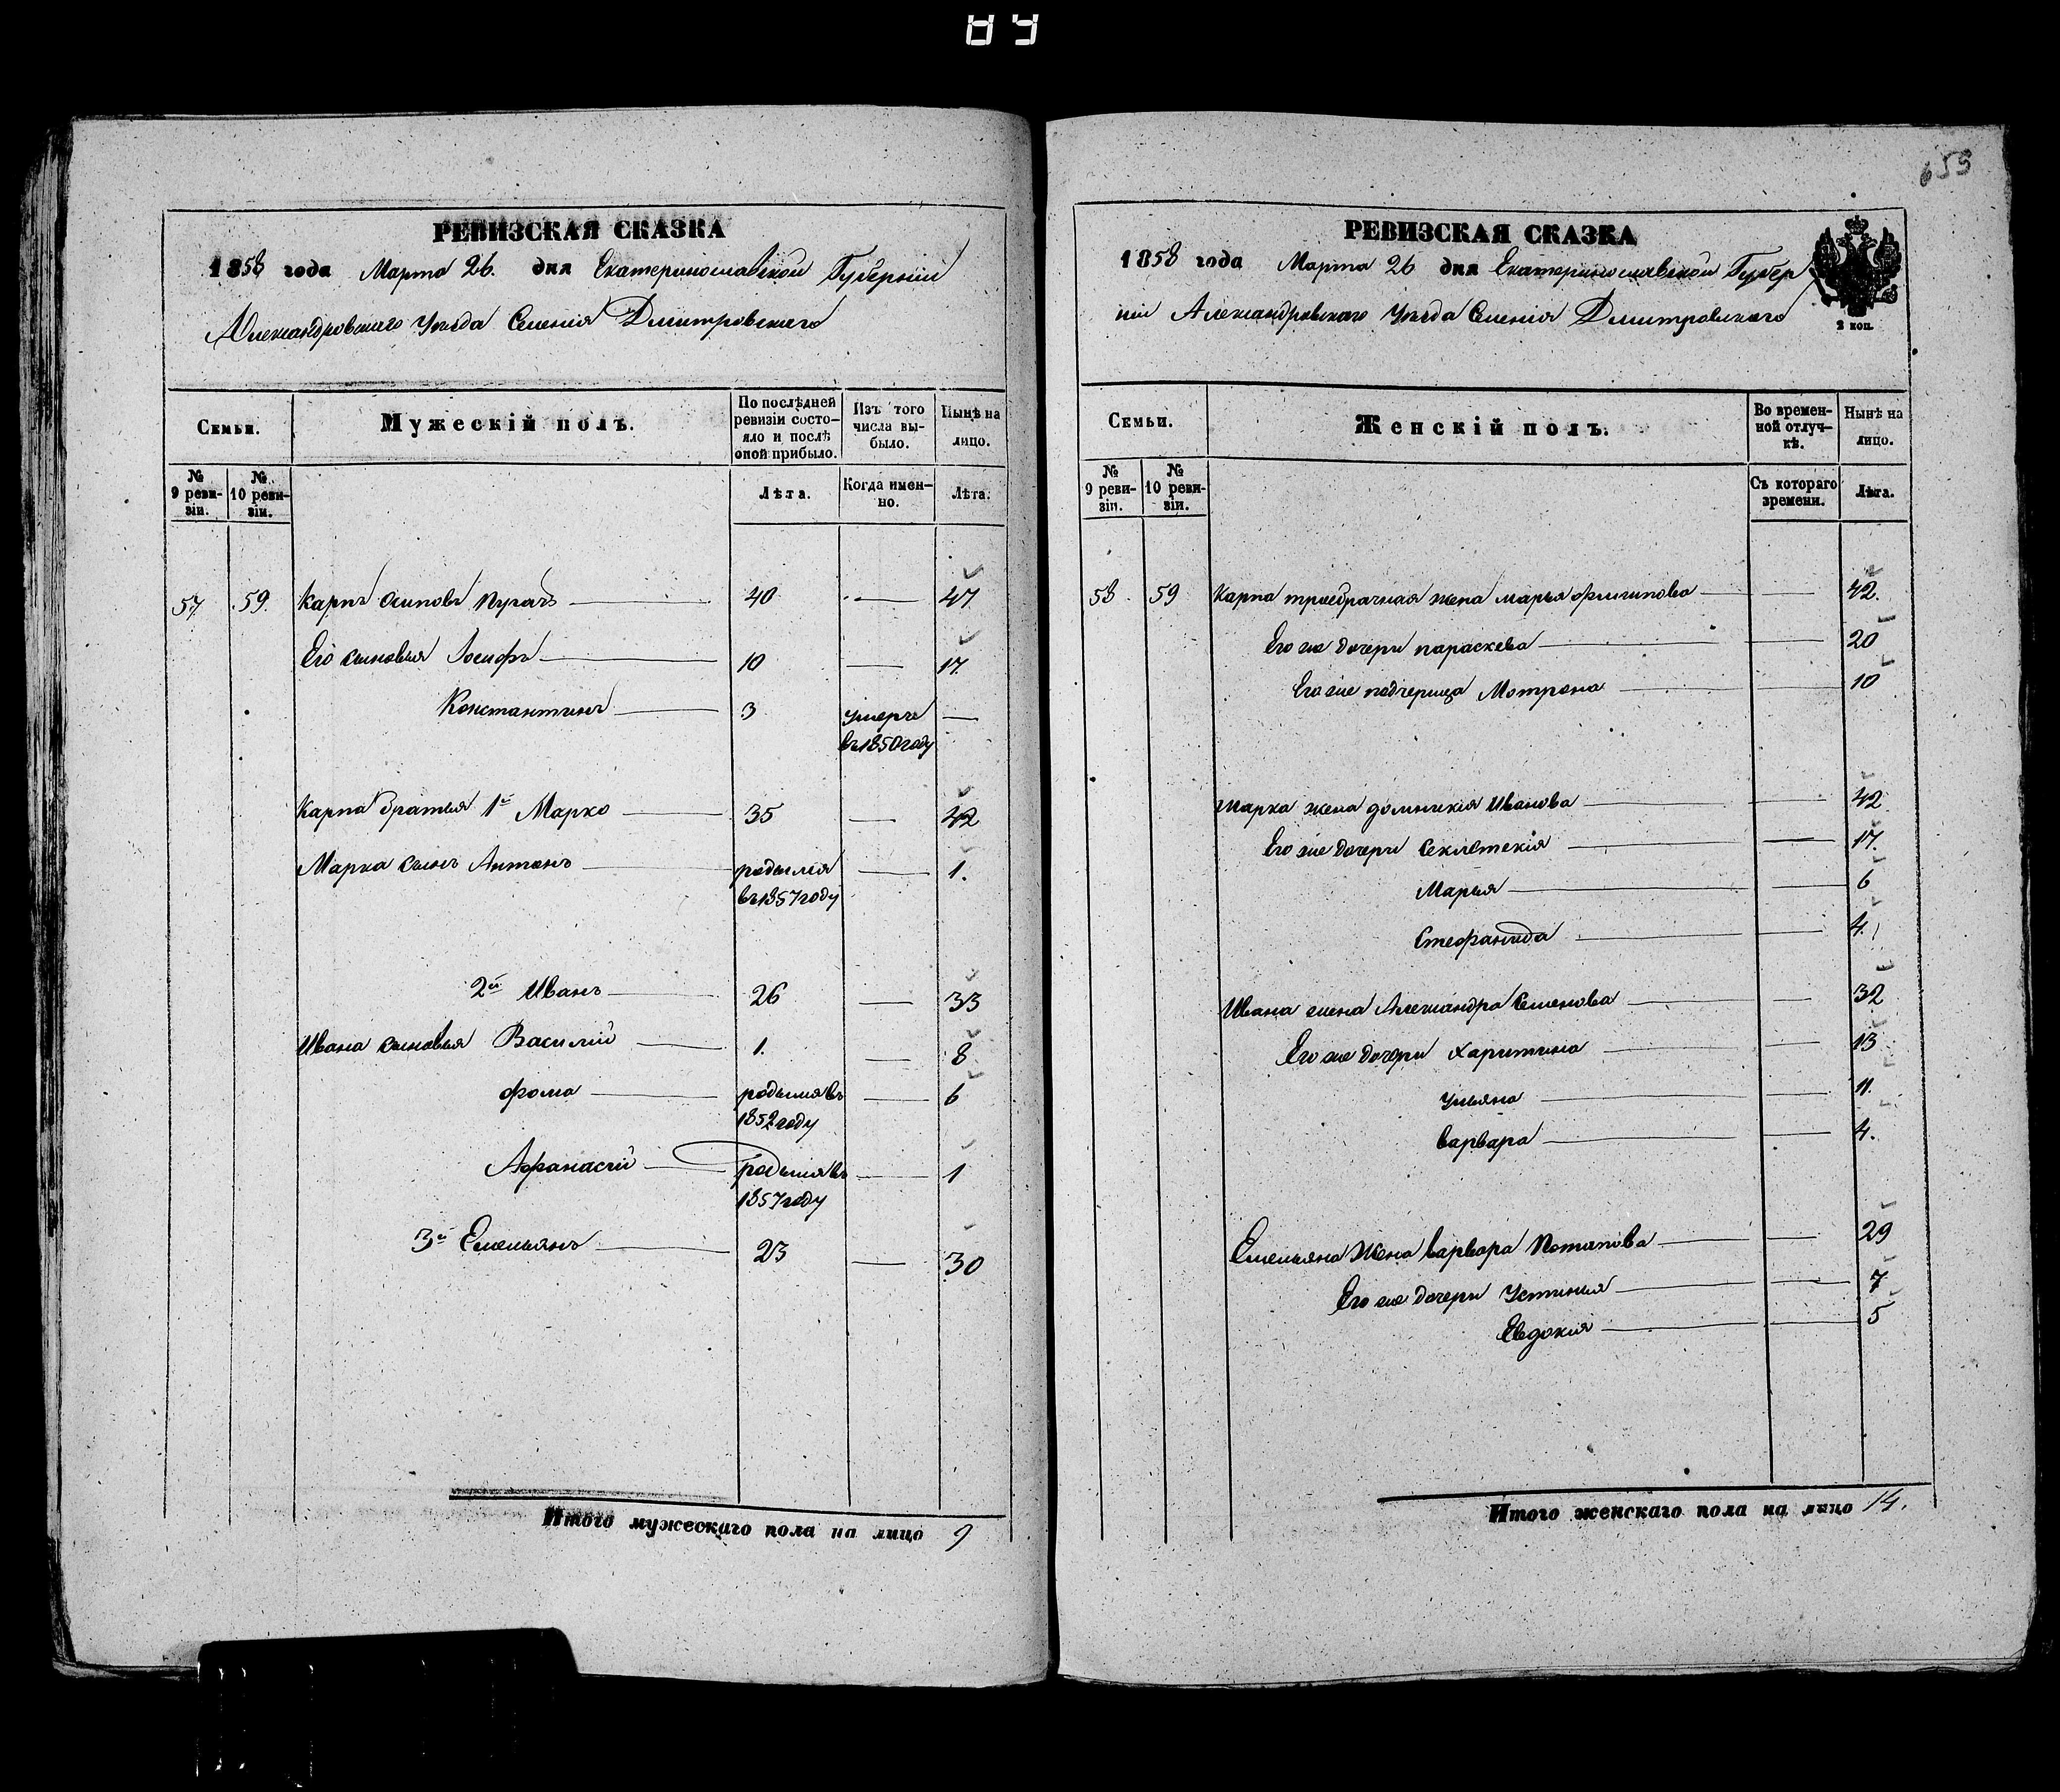 89
РЕВИЗСКАЯ СКАЗКА
1858 года Марта 26. дня Екатеринославской Губерніи
Александровскаго Уѣзда Селенія Дмитровскаго
Семьи.
Мужескій полъ.
По послѣдней ревизіи состояло и послѣ оной прибыло.
Изъ того числа выбыло.
Нынѣ на лицо.
№ 9 ревизіи.
№ 10 ревизіи.
Лѣта.
Когда именно.
Лѣта.
57 59. Карпъ Осиповъ Пугачъ 40 — 47
Его сыновья Іосифъ 10 — 17.
Константинъ 3 умеръ —
въ 1850 году
Карпа братья 1й Марко 35 — 42
Марка сынъ Антонъ родился — 1.
въ 1857 году
2й Иванъ 26 — 33
Ивана сыновья Василій 1. — 8
Фома родился въ — 6
1852 году
Афанасій родился въ — 1
1857 году
3й Емельянъ 23 — 30
Итого мужескаго пола на лицо 9
655
РЕВИЗСКАЯ СКАЗКА
1858 года Марта 26 дня Екатеринославской Губер
ніи Александровскаго Уѣзда Селенія Дмитровскаго
2 коп.
Семьи.
Женскій полъ.
Во временной отлучкѣ.
Нынѣ на лицо.
№ 9 ревизіи.
№ 10 ревизіи.
Съ котораго времени.
Лѣта.
58 59 Карпа троебрачная жена Марья Филипова — 42.
Его же дочери Параскева — 20
Его же подчерица Мотрона — 10
Марка жена Домникія Иванова — 42
Его же дочери Секлетекія — 17.
Марья — 6
Стефанида — 4.
Ивана жена Александра Семенова — 32
Его же дочери Харитина — 13
Ульяна — 11.
Варвара — 4.
Емельяна Жена Варвара Потапова — 29
Его же дочери Устинья — 7
Евдокия — 5
Итого женскаго пола на лицо 14.